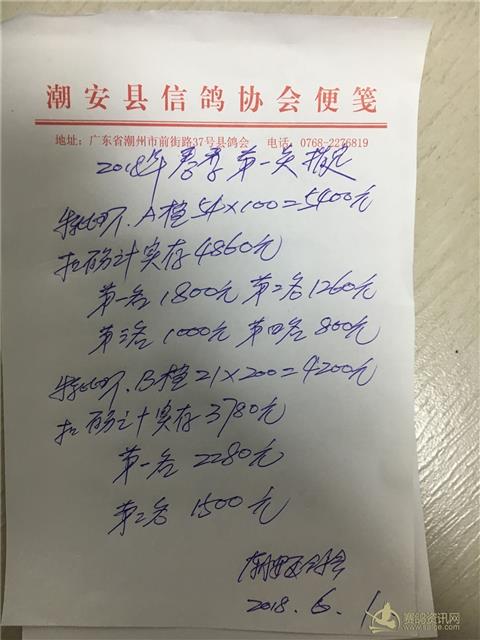 潮安县信鸽协会便笺
地址：广东省潮州市前街路37号县鸽会 电话：0768-2276819
2018年春季第一关指定
特比环.A植54×100=5400元
扣酬计实存4860元
第一名1800元 第二名1260元
第三名1000元 第四名800元
特比环.B植21×200=4200元
扣酬计实存3780元
第一名 2280元
第二名 1500元
2018.6.1
赛鸽资讯网
www.saige.com